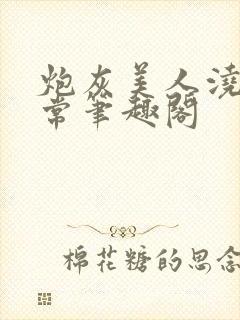 炮灰美人浇
常笔趣阁
棉花糖的思念